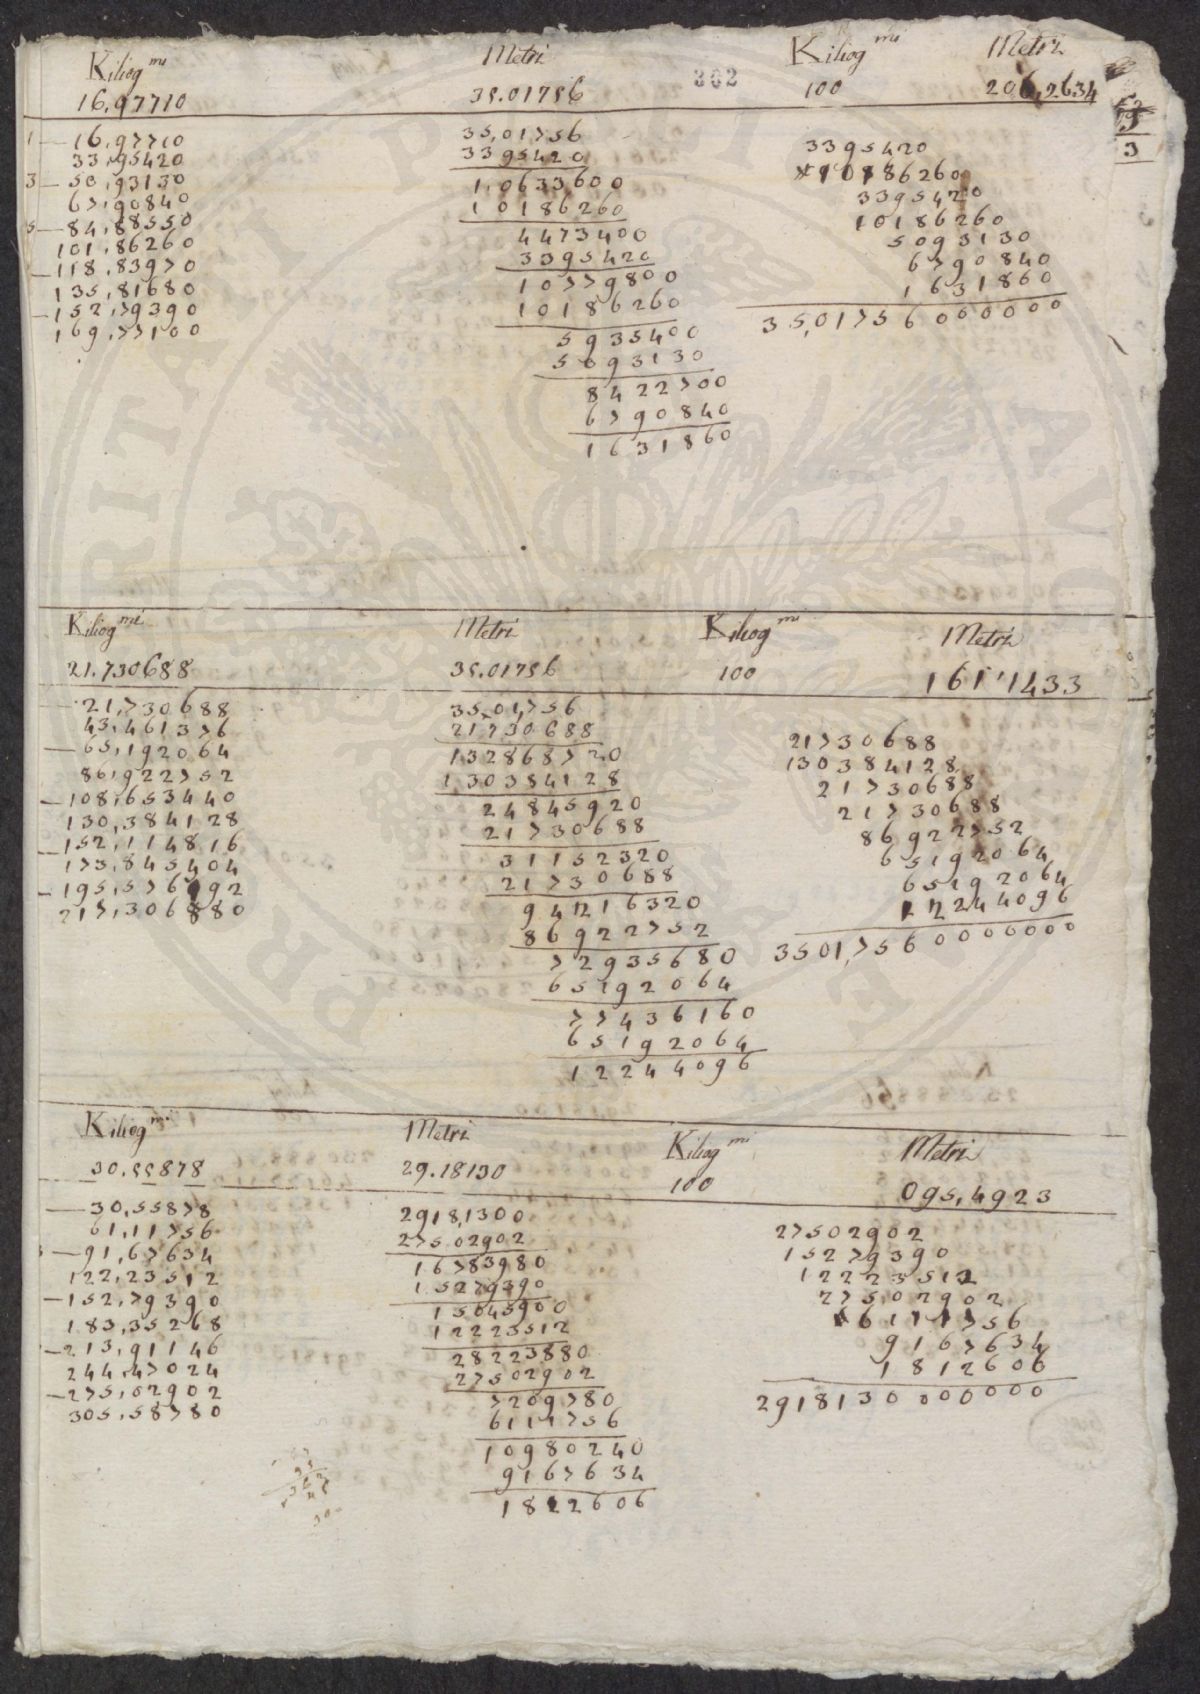 302
Kiliog mi Metri Kiliog mi Metri
16.97710 35.01756 100 206,2634
3
1 — 16,97710
33,95420
3 — 50,93130
67,90840
5 — 84,88550
101,86260
— 118,83970
135,81680
— 152,79390
169,77100
35,01756
3395420
1,0633600
10186260
4473400
3395420
10779800
10186260
5935400
5093130
8422700
6790840
1631860
3395420
10186260
3395420
10186260
5093130
6790840
1631860
35,01756000000
Kiliog mi Metri Kiliog mi Metri
21.730688 35.01756 100 161,1433
— 21,730688
43,461376
— 65,192064
86,922752
— 108,653440
130,384128
— 152,114816
173,845404
— 195,576192
217,306880
35,01,756
21730688
132868720
130384128
24845920
21730688
31152320
21730688
94216320
86922752
72935680
65192064
77436160
65192064
12244096
21730688
130384128
21730688
21730688
86922752
65192064
65192064
12244096
3501,7560000000
Kiliog mi Metri Kiliog mi Metri
30.55878 29.18130 100 095,4923
— 30,55878
61,11756
3 — 91,67634
122,23512
— 152,79390
183,35268
— 213,91146
244,47024
— 275,02902
305,58780
2918,1300
27502902
16783980
15279390
15045900
12223512
28223880
27502902
7209780
6111756
10980240
9167634
1812606
27502902
15279390
12223512
27502902
6111756
9167634
1812606
2918130000000